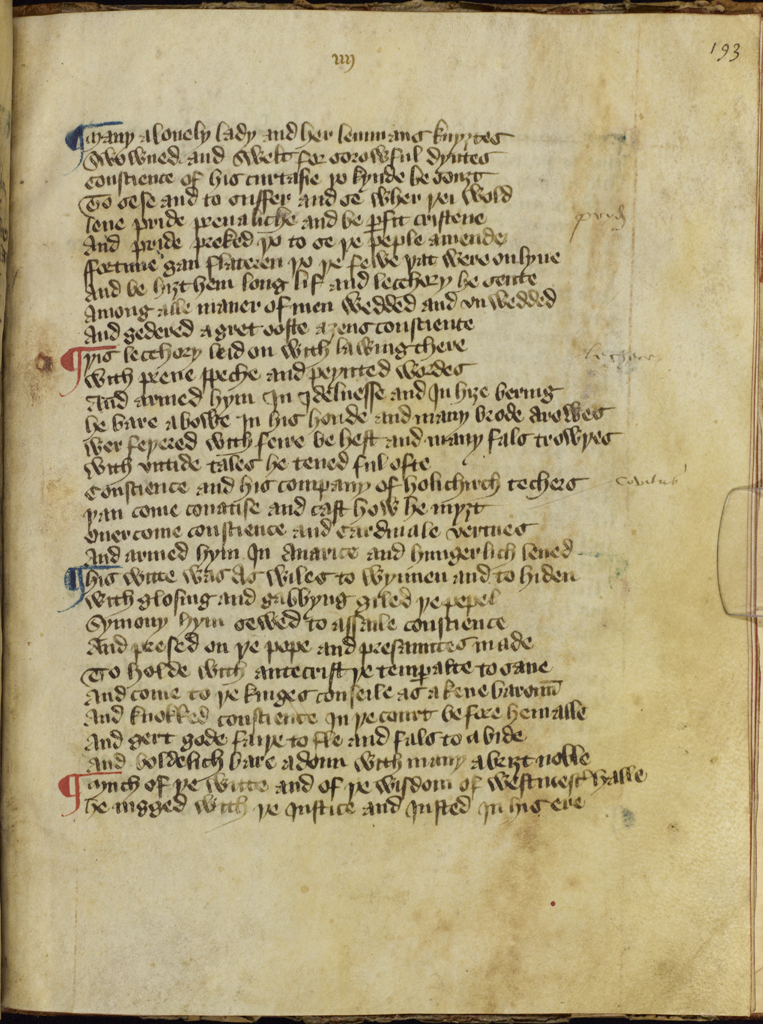 193
iiij
Many a louely lady and her lemmans knyȝtes
Swowned and swelt for sorowful dyntes
Conscience of his curtasie þo kynde be souȝt
To sese and to suffer and se wher þei wold
leue pride preualiche and be ꝑfit cristene
And pride peeked þo to se þe peple amende
ffortune gan flateren þo þe fewe þat were on lyue
And be hiȝt hem long lif and lecchery he sente
Among alle maner of men wedded and vn wedded
And gedered a gret ooste aȝens conscience
þis lecchory leid on with lawing chere
With preue speche and peynted wordes
And armed hym In ydelnesse and In hiȝe bering
he bare a bowe in his honde and many brode arowes
wer feþered with feire be hest and many fals trowþes
With vntide tales he tened ful ofte
Conscience and his company of holichirch techers
þan come couatise and cast how he myȝt
Ouercome conscience and Cardinale vertues
And armed hym In Auarice and hungerlich leued
his witte was As wiles to wynnen and to hiden
With glosing and gabbyng giled þe pepel
Symony hym sewed to assaile conscience
And presed on þe pope and presauntes made
To holde with antecrist þe temꝑalte to saue
And come to þe kinges conseile as a kene baroun
And knokked conscience In þe court be fore hem alle
And gert gode faiþe to fle and fals to a bide
And boldelich bare adoun with many a beiȝt noble
Mych of þe witte and of þe wisdom of westmester halle
he iugged with þe Iustice and Iusted In his ere